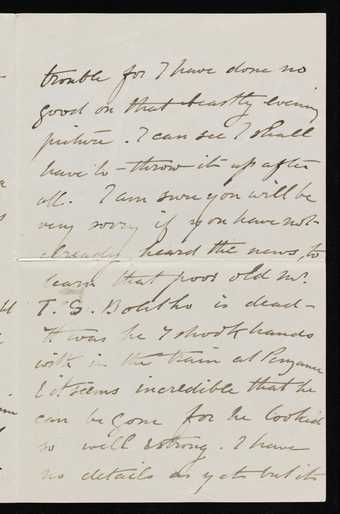 trouble for I have done no
good on that beastly evening
picture. I can see I shall
have to throw it up after
all. I am sure you will be
very sorry if you have not
already heard the news, to
learn that poor old Mr.
T. S. Bolitho is dead-
It was he I shook hands
with in the train at Penzance
& it seems incredible that he
can be gone for he looked
so well & strong. I have
no details as yet but it